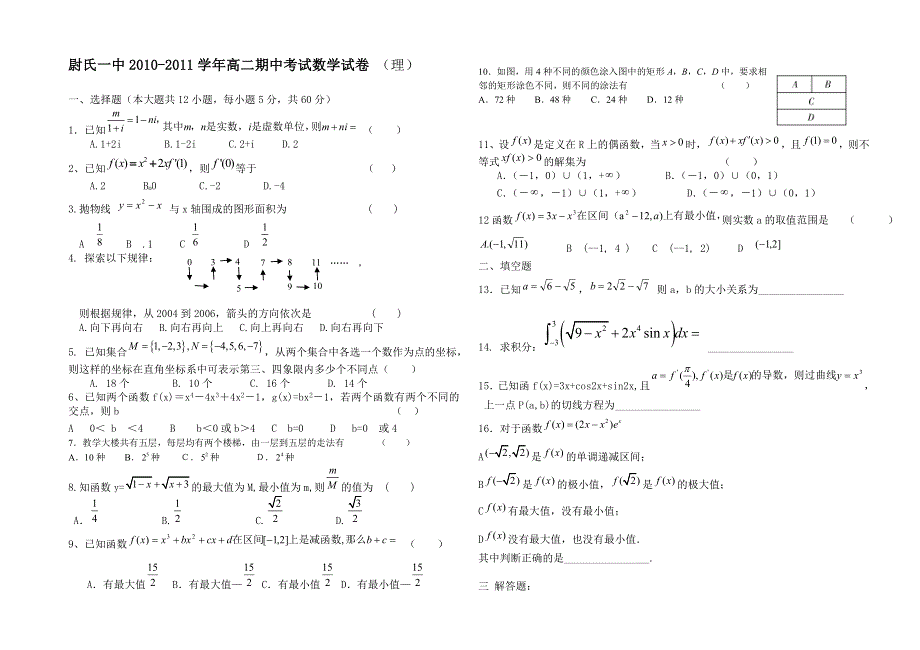 尉氏一中2010-2011学年高二期中考试数学试卷 (理)
一、选择题（本大题共12小题，每小题5分，共60分）
1．已知 m/(1+i)=1-ni, 其中m，n是实数，i是虚数单位，则m+ni= （ ）
A.1+2i B.1-2i C.2+i D.2
2、已知f(x)=x²+2xf′(1)，则f′(0)等于 （ ）
A.2 B.0 C.-2 D.-4
3.抛物线 y=x²-x 与x轴围成的图形面积为 （ ）
A 1/8 B .1 C 1/6 D 1/2
4. 探索以下规律：
0 3 4 7 8 11 …… ，
5 9 10
则根据规律，从2004到2006，箭头的方向依次是 （ ）
A.向下再向右 B.向右再向上 C.向上再向右 D.向右再向下
5. 已知集合M={1,-2,3},N={-4,5,6,-7}，从两个集合中各选一个数作为点的坐标，
则这样的坐标在直角坐标系中可表示第三、四象限内多少个不同点（ ）
A. 18个 B. 10个 C. 16个 D. 14个
6、已知两个函数f(x)＝x⁴－4x³＋4x²－1，g(x)=bx²－1，若两个函数有两个不同的
交点，则b （ ）
A 0＜ b ＜4 B b＜0或b＞4 C b=0 D b=0 或4
7．教学大楼共有五层，每层均有两个楼梯，由一层到五层的走法有 （ ）
A．10种 B．2⁵种 C．5²种 D．2⁴种
8.知函数y=√(1-x)+√(x+3)的最大值为M,最小值为m,则m/M的值为 （ ）
A． 1/4 B. 1/2 C. √2/2 D. √3/2
9、已知函数f(x)=x³+bx²+cx+d在区间[-1,2]上是减函数,那么b+c= （ ）
A．有最大值15/2 B．有最大值—15/2 C．有最小值15/2 D．有最小值—15/2
10．如图，用4种不同的颜色涂入图中的矩形A，B，C，D中，要求相
邻的矩形涂色不同，则不同的涂法有 （ ）
A．72种 B．48种 C．24种 D．12种
A B
C
D
11、设f(x)是定义在R上的偶函数，当x>0时，f(x)+xf′(x)>0，且f(1)=0，则不
等式xf(x)>0的解集为 （ ）
A.（－1，0）∪（1，+∞） B.（－1，0）∪（0，1）
C.（－∞，－1）∪（1，+∞） D.（－∞，－1）∪（0，1）
12函数f(x)=3x-x³在区间（a²-12,a)上有最小值，则实数a的取值范围是 （ ）
A.(-1,√11) B (--1, 4 ) C (--1, 2) D (-1,2]
二、填空题
13．已知a=√6-√5，b=2√2-√7 则a，b的大小关系为
14. 求积分: ∫₋₃³(√(9-x²)+2x⁴ sin x)dx=
15．已知函f(x)=3x+cos2x+sin2x,且a=f′(π/4),f′(x)是f(x)的导数，则过曲线y=x³，
上一点P(a,b)的切线方程为
16．对于函数f(x)=(2x-x²)eˣ
A(-√2,√2)是f(x)的单调递减区间；
Bf(-√2)是f(x)的极小值，f(√2)是f(x)的极大值；
Cf(x)有最大值，没有最小值；
Df(x)没有最大值，也没有最小值．
其中判断正确的是____________．
三 解答题：